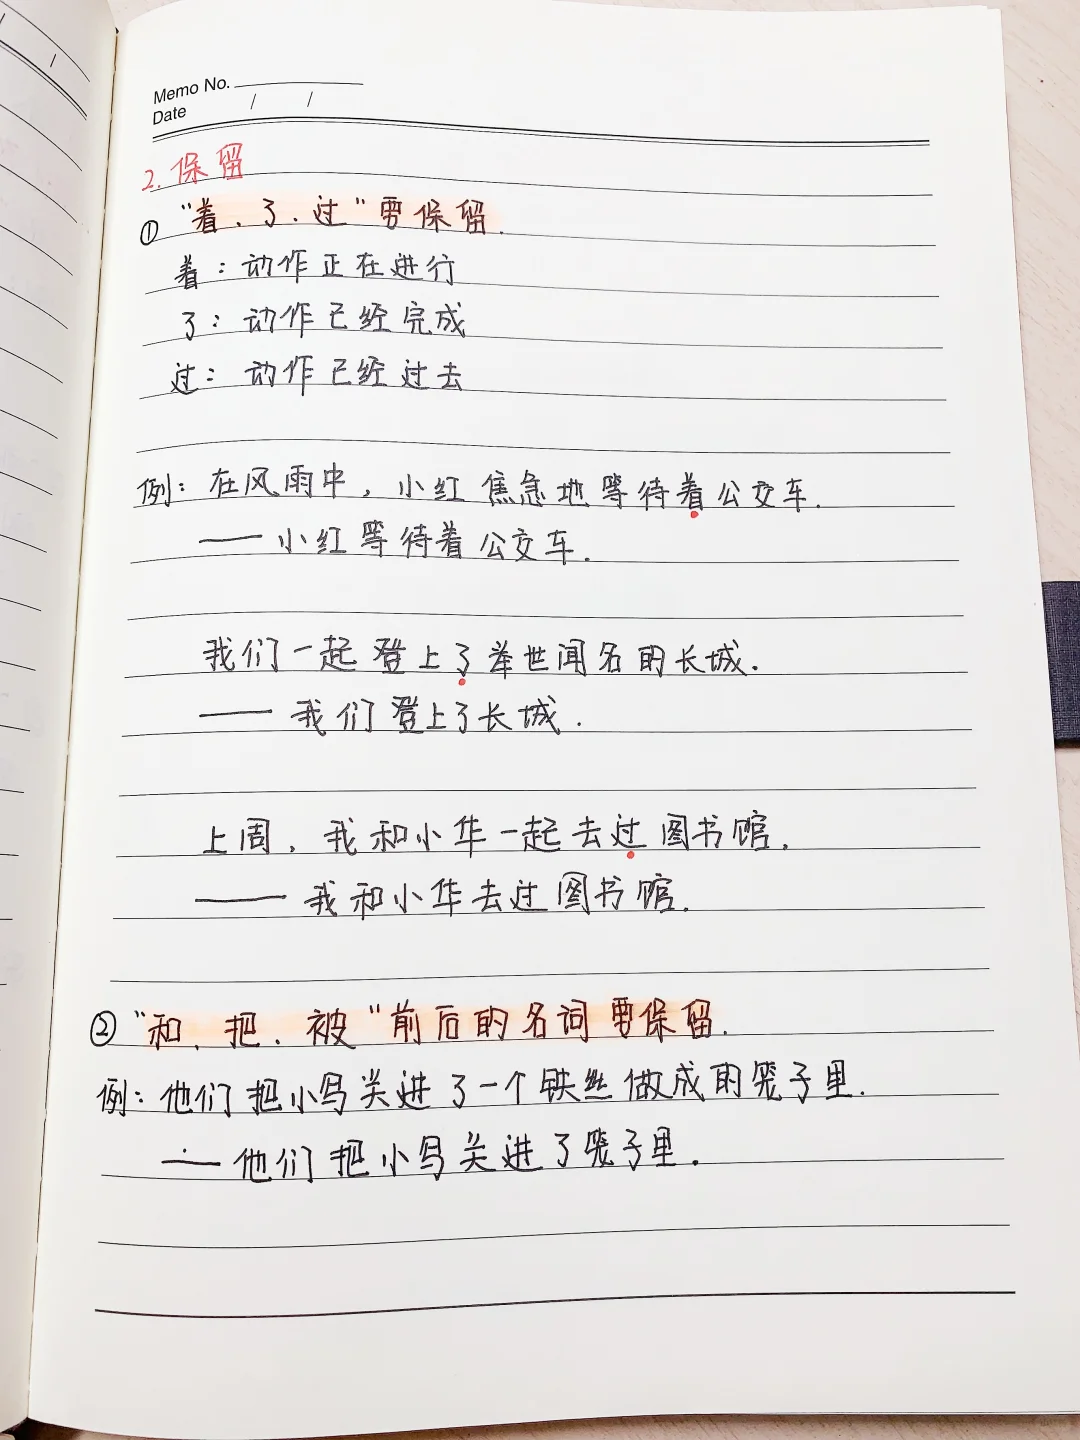 Memo No.
Date / /
2.保留
①“着、了、过”要保留.
着：动作正在进行
了：动作已经完成
过：动作已经过去
例：在风雨中，小红焦急地等待着公交车.
——小红等待着公交车.
我们一起登上了举世闻名的长城.
——我们登上了长城.
上周，我和小华一起去过图书馆.
——我和小华去过图书馆.
②“和、把、被”前后的名词要保留.
例：他们把小鸟关进了一个铁丝做成的笼子里.
——他们把小鸟关进了笼子里.